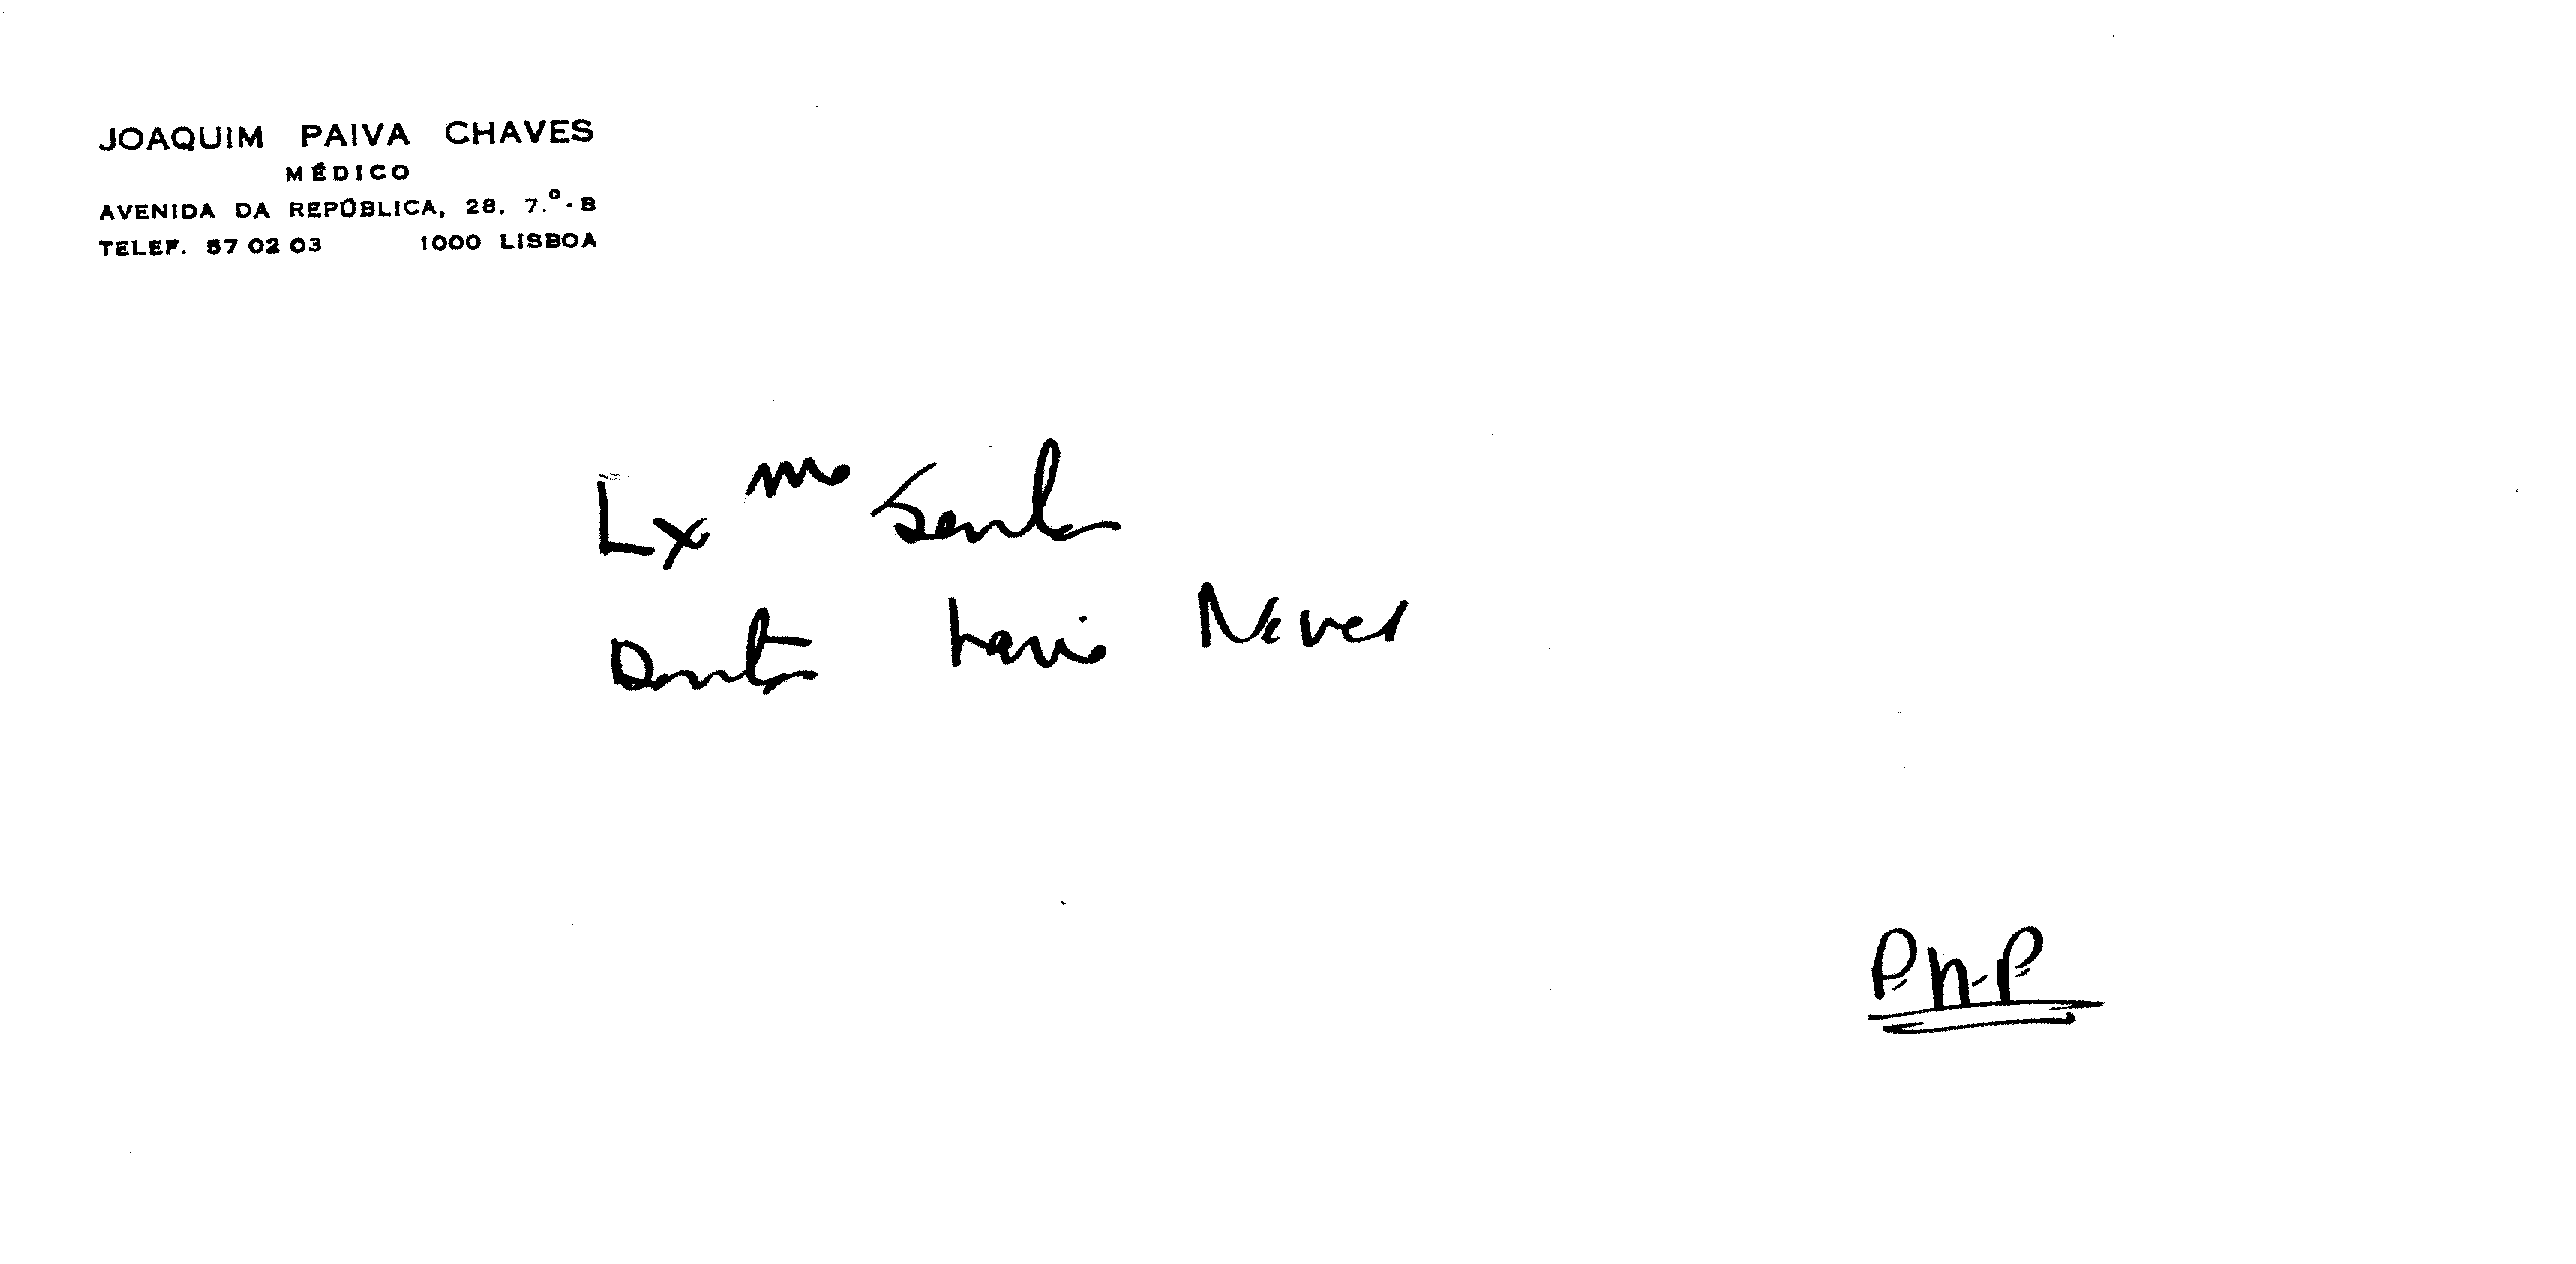 JOAQUIM PAIVA CHAVES
MÉDICO
AVENIDA DA REPÚBLICA, 28, 7.º-B
TELEF. 57 02 03 1000 LISBOA
Exmo Senhor
Doutor Neves